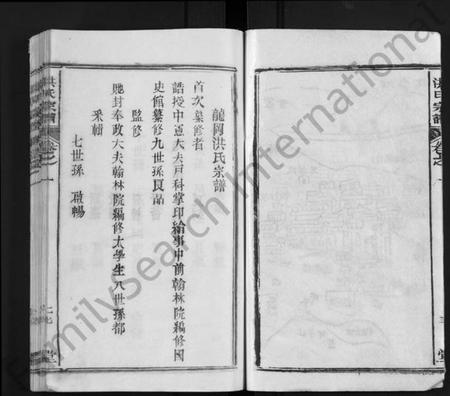 龍岡洪氏宗譜
首次纂修者
誥授中憲大夫戶科掌印給事中前翰林院編修國
史館纂修九世孫良品
監修
貤封奉政大夫翰林院編修太學生八世孫都
采補
七世孫 啟暢
洪氏宗譜
洪氏宗譜 卷之一
堂
FamilySearch International